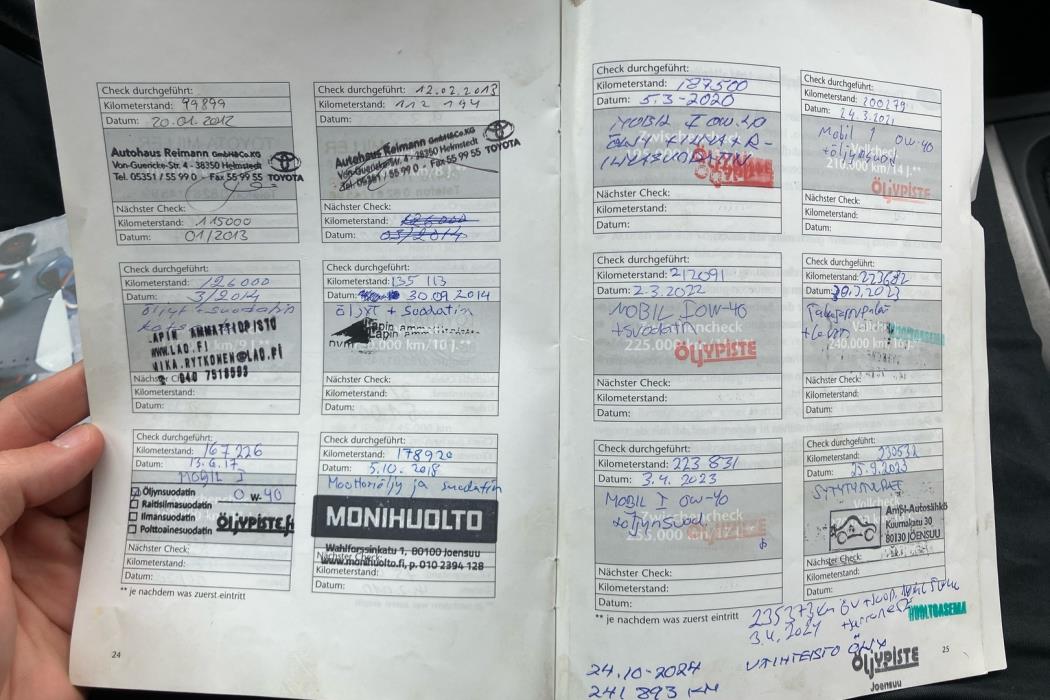 Check durchgeführt:
Kilometerstand: 99899
Datum: 20.01.2012
Autohaus Reimann GmbH&Co.KG
Von-Guericke-Str. 4 - 38350 Helmstedt
Tel. 05351 / 55 99 0 - Fax 55 99 55 TOYOTA
Nächster Check:
Kilometerstand: 115000
Datum: 01/2013
Check durchgeführt: 12.02.2013
Kilometerstand: 112 194
Datum:
Autohaus Reimann GmbH&Co.KG
Von-Guericke-Str. 4 - 38350 Helmstedt
Tel. 05351 / 55 99 0 - Fax 55 99 55 TOYOTA
Nächster Check:
Kilometerstand: 126000
Datum: 03/2014
Check durchgeführt:
Kilometerstand: 126000
Datum: 3/2014
öljyt + suodatin
LAPIN AMMATTIOPISTO
WWW.LAO.FI
MIKA.RYTKONEN@LAO.FI
Nächster Check:
Kilometerstand:
Datum:
Check durchgeführt:
Kilometerstand: 135 113
Datum: 30.09.2014
öljyt + suodatin
Lapin
Nächster Check:
Kilometerstand:
Datum:
Check durchgeführt:
Kilometerstand: 167 226
Datum: 13.6.17
MOBIL 1
Öljynsuodatin 0 W-40
Raitisilmasuodatin
Ilmansuodatin
Polttoainesuodatin ÖLJYPISTE.fi
Nächster Check:
Kilometerstand:
Datum:
Check durchgeführt:
Kilometerstand: 178920
Datum: 5.10.2018
Moottoriöljy ja suodatin
MONIHUOLTO
Wahlforssinkatu 1, 80100 Joensuu
www.monihuolto.fi, p. 010 2394 128
Nächster Check:
Kilometerstand:
Datum:
** je nachdem was zuerst eintritt
24
Check durchgeführt:
Kilometerstand: 187500
Datum: 5.3-2020
MOBIL 1 0W-40
ILMASUODATIN
Nächster Check:
Kilometerstand:
Datum:
Check durchgeführt:
Kilometerstand: 200279
Datum: 24.3.2021
Mobil 1 0W-40
+öljynsuod
210.000 km/14 J.**
ÖLJYPISTE
Nächster Check:
Kilometerstand:
Datum:
Check durchgeführt:
Kilometerstand: 212091
Datum: 2.3.2022
MOBIL 1 0W-40
+suodatin
225.000 km
ÖLJYPISTE
Nächster Check:
Kilometerstand:
Datum:
Check durchgeführt:
Kilometerstand:
Datum:
240.000 km
Nächster Check:
Kilometerstand:
Datum:
Check durchgeführt:
Kilometerstand: 223 831
Datum: 3.4.2023
MOBIL 1 0W-40
+öljynsuod
Nächster Check:
Kilometerstand:
Datum:
Check durchgeführt:
Kilometerstand: 230532
Datum: 25.9.2023
Vollcheck
Autosähkö
Kuurnakatu 30
80130 JOENSUU
Nächster Check:
Kilometerstand:
Datum:
** je nachdem was zuerst eintritt
235373 km
3.4.2024
HUOLTOASEMA
VAIHTEISTO ÖLJY
24.10-2024
241 893 KM
ÖLJYPISTE
Joensuu
25